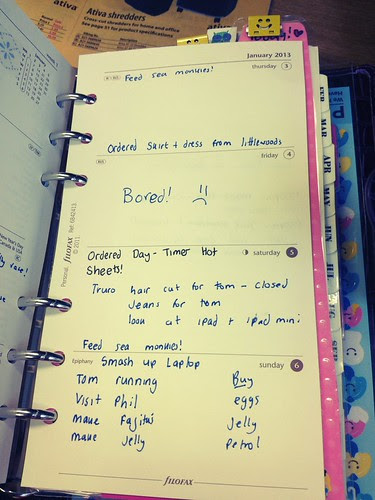 ativa
Ativa shredders
Cross-cut shredders for home and office
See page 51 for product specifications
January 2013
thursday 3
Feed sea monkies!
Ordered Skirt + dress from littlewoods
friday 4
Bored!
Ordered Day-Timer Hot
Sheets!
saturday 5
Truro hair cut for tom - closed
Jeans for tom
look at ipad + ipad mini
Feed sea monkies!
Epiphany
Smash up Laptop
sunday 6
Tom running
Buy
Visit Phil
eggs
make Fajitas
Jelly
make Jelly
Petrol
Personal filofax Ref: 6842413
© 2011
filofax
FEB
MAR
APR
MAY
JUN
JUL
AUG
SEP